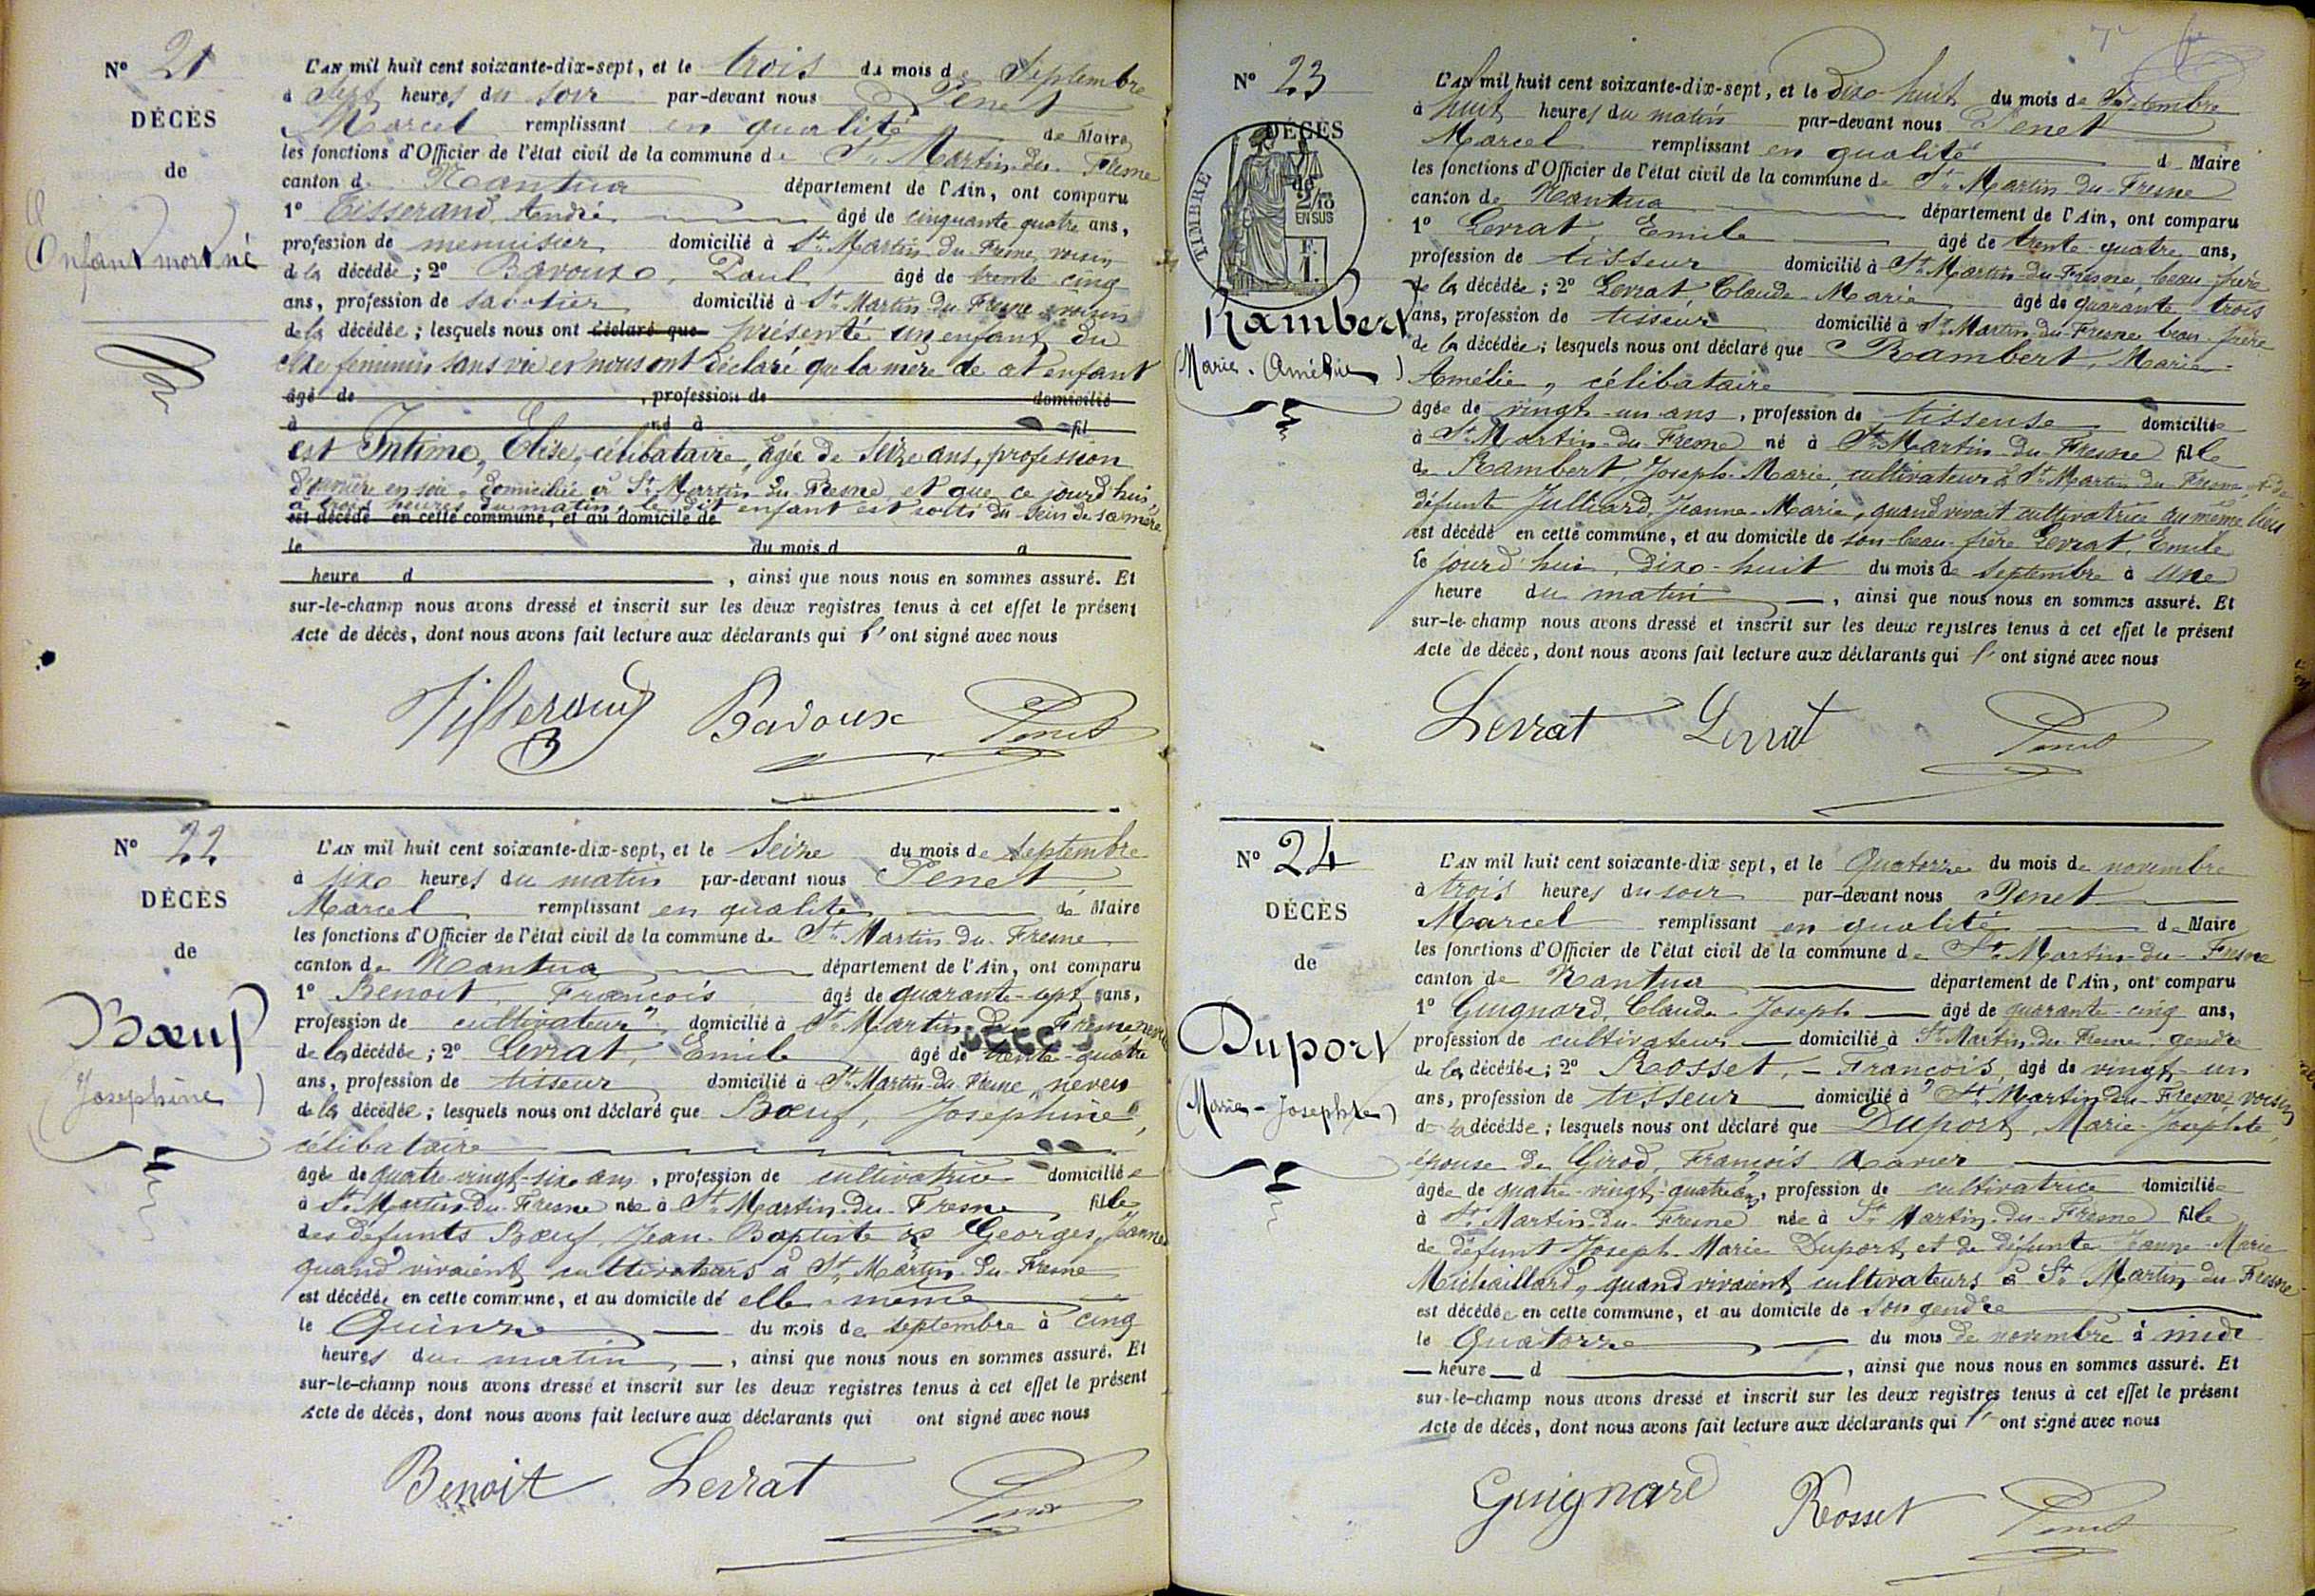 N° 21
DÉCÈS
de
Enfant mort né
L'AN mil huit cent soixante-dix-sept, et le trois du mois de Septembre
à Sept heures du soir par-devant nous Penet
Marcel remplissant en qualité de Maire
les fonctions d'Officier de l'état civil de la commune de St Martin-du-Fresne
canton de Nantua département de l'Ain, ont comparu
1° Tisserand, André âgé de cinquante quatre ans,
profession de menuisier domicilié à St Martin-du-Fresne, voisin
de la décédée ; 2° Bavoux, Paul âgé de trente cinq
ans, profession de sabotier domicilié à St Martin-du-Fresne voisin
de la décédée ; lesquels nous ont déclaré que présenté un enfant du
sexe féminin sans vie et nous ont déclaré que la mère de cet enfant
âgé de , profession de domicilié
à né à fil
est Intime, Elise, célibataire, âgée de seize ans, profession
d'ouvrière en soie, domiciliée à St Martin du Fresne, et que ce jourd'hui,
à trois heures du matin, le dit enfant est sorti du sein de sa mère
est décédé en cette commune, et au domicile de
le du mois d à
heure d , ainsi que nous nous en sommes assuré. Et
sur-le-champ nous avons dressé et inscrit sur les deux registres tenus à cet effet le présent
Acte de décès, dont nous avons fait lecture aux déclarants qui l'ont signé avec nous
Tisserand Bavoux Penet
N° 22
DÉCÈS
de
Bœuf
(Josephine)
L'AN mil huit cent soixante-dix-sept, et le Seize du mois de Septembre
à six heures du matin par-devant nous Penet
Marcel remplissant en qualité de Maire
les fonctions d'Officier de l'état civil de la commune de St Martin-du-Fresne
canton de Nantua département de l'Ain, ont comparu
1° Benoit, François âgé de quarante-sept ans,
profession de cultivateur domicilié à St Martin-du-Fresne neveu
de la décédée ; 2° Levrat, Emile âgé de trente-quatre
ans, profession de tisseur domicilié à St Martin-du-Fresne, neveu
de la décédée ; lesquels nous ont déclaré que Bœuf, Josephine,
célibataire
âgée de quatre-vingt-six ans, profession de cultivatrice domiciliée
à St Martin-du-Fresne née à St Martin-du-Fresne fille
des défunts Bœuf, Jean-Baptiste et Georges, Jeanne
quand vivaient cultivateurs à St Martin-du-Fresne
est décédée en cette commune, et au domicile de elle-même
le Quinze du mois de septembre à cinq
heures du matin, ainsi que nous nous en sommes assuré. Et
sur-le-champ nous avons dressé et inscrit sur les deux registres tenus à cet effet le présent
Acte de décès, dont nous avons fait lecture aux déclarants qui ont signé avec nous
Benoit Levrat Penet
N° 23
DÉCÈS
de
TIMBRE
2/10
EN SUS
F.
1.
Rambert
(Marie-Amélie)
L'AN mil huit cent soixante-dix-sept, et le dix-huit du mois de Septembre
à huit heures du matin par-devant nous Penet
Marcel remplissant en qualité de Maire
les fonctions d'Officier de l'état civil de la commune de St Martin-du-Fresne
canton de Nantua département de l'Ain, ont comparu
1° Levrat, Emile âgé de trente-quatre ans,
profession de tisseur domicilié à St Martin-du-Fresne, beau-frère
de la décédée ; 2° Levrat, Claude-Marie âgé de quarante-trois
ans, profession de tisseur domicilié à St Martin-du-Fresne beau-frère
de la décédée ; lesquels nous ont déclaré que Rambert, Marie-
Amélie, célibataire
âgée de vingt-un ans, profession de tisseuse domiciliée
à St Martin-du-Fresne né à St Martin-du-Fresne fille
de Rambert, Joseph-Marie, cultivateur à St Martin-du-Fresne, et de
défunte Julliard, Jeanne-Marie, quand vivait cultivatrice au même lieu
est décédé en cette commune, et au domicile de son beau-frère Levrat, Emile
le jourd'hui, Dix-huit du mois de septembre à une
heure du matin, ainsi que nous nous en sommes assuré. Et
sur-le-champ nous avons dressé et inscrit sur les deux registres tenus à cet effet le présent
Acte de décès, dont nous avons fait lecture aux déclarants qui l'ont signé avec nous
Levrat Levrat Penet
N° 24
DÉCÈS
de
Duport
(Marie-Josephte)
L'AN mil huit cent soixante-dix-sept, et le Quatorze du mois de novembre
à trois heures du soir par-devant nous Penet
Marcel remplissant en qualité de Maire
les fonctions d'Officier de l'état civil de la commune de St Martin-du-Fresne
canton de Nantua département de l'Ain, ont comparu
1° Guignard, Claude-Joseph âgé de quarante-cinq ans,
profession de cultivateur domicilié à St Martin-du-Fresne, gendre
de la décédée ; 2° Rosset, François, âgé de vingt-un
ans, profession de tisseur domicilié à St Martin-du-Fresne, voisin
de la décédée ; lesquels nous ont déclaré que Duport, Marie-Josephte,
épouse de Girod, François Xavier
âgée de quatre-vingt-quatre ans, profession de cultivatrice domiciliée
à St Martin-du-Fresne née à St Martin-du-Fresne fille
de défunt Joseph-Marie Duport et de défunte Jeanne-Marie
Michaillard, quand vivaient cultivateurs à St Martin du Fresne
est décédée en cette commune, et au domicile de son gendre
le Quatorze du mois de novembre à midi
heure d , ainsi que nous nous en sommes assuré. Et
sur-le-champ nous avons dressé et inscrit sur les deux registres tenus à cet effet le présent
Acte de décès, dont nous avons fait lecture aux déclarants qui l'ont signé avec nous
Guignard Rosset Penet